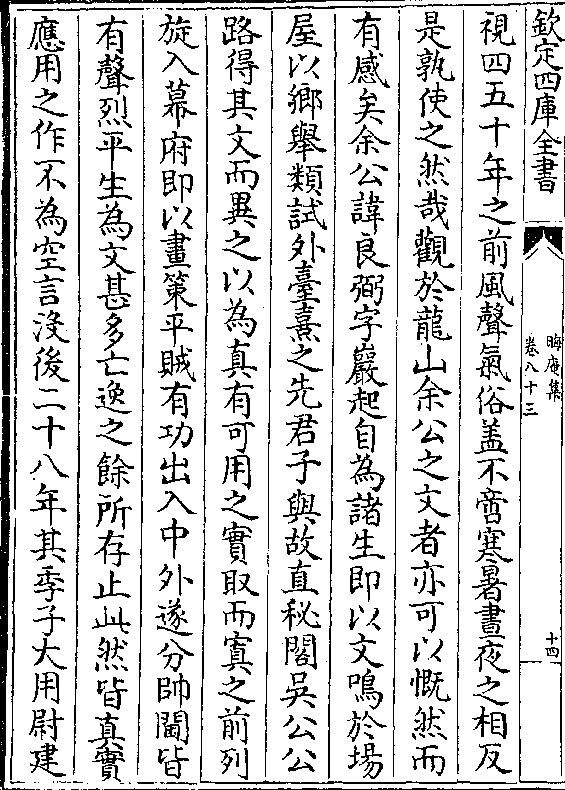 欽定四庫全書
晦庵集
卷八十三
十四
視四五十年之前風聲氣俗蓋不啻寒暑晝夜之相反
是孰使之然哉觀於龍山余公之文者亦可以慨然而
有感矣余公諱良弼字巖起自為諸生即以文鳴於場
屋以鄉舉類試外臺熹之先君子與故直秘閣吳公公
路得其文而異之以為真有可用之實取而寘之前列
旋入幕府即以畫策平賊有功出入中外遂分帥閫皆
有聲烈平生為文甚多亡逸之餘所存止此然皆真實
應用之作不為空言沒後二十八年其季子大用尉建